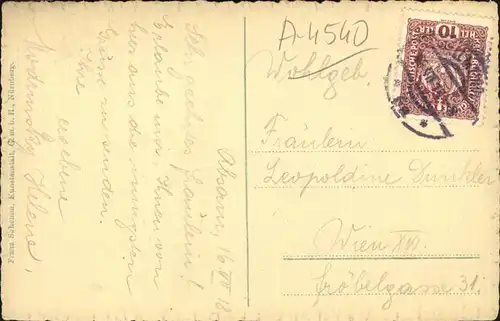 Absam, 16 VII 18
Sehr geehrtes Fräulein!
Erlaube mir Ihnen von
hier aus die innigsten
Grüße zu senden.
Ihre
ergebene
Helene
Franz Schemm, Kunstanstalt, G. m. b. H., Nürnberg.
A-4540
Wohlgeb.
Fräulein
Leopoldine Dunkler
Wien XVI.
Fröbelgasse 31.
10